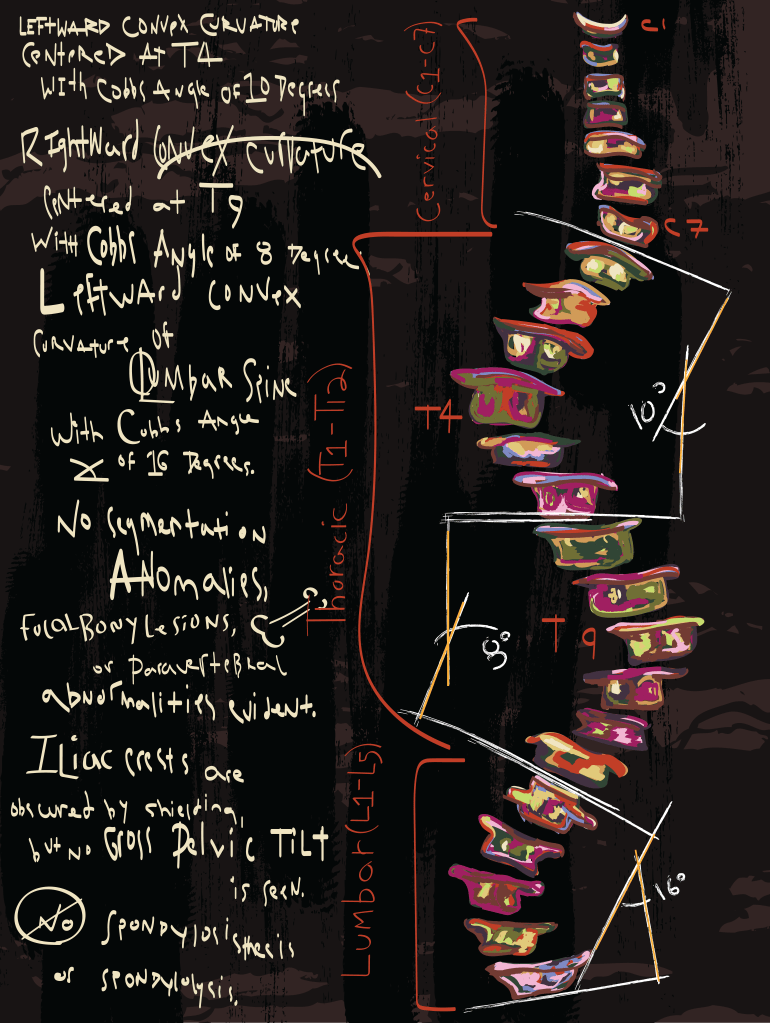 LEFTWARD CONVEX CURVATURE
CENTERED AT T4
WITH COBBS ANGLE OF 10 DEGREES
RIGHTWARD CONVEX CURVATURE
CENTERED AT T9
WITH COBBS ANGLE OF 8 DEGREES
LEFTWARD CONVEX
CURVATURE OF
LUMBAR SPINE
WITH COBBS ANGLE
OF 16 DEGREES.
NO SEGMENTATION
ANOMALIES,
FOCAL BONY LESIONS,
OR PARAVERTEBRAL
ABNORMALITIES EVIDENT.
ILIAC CRESTS ARE
OBSCURED BY SHIELDING,
BUT NO GROSS PELVIC TILT
IS SEEN.
NO SPONDYLOLISTHESIS
OR SPONDYLOLYSIS.
Cervical (C1-C7)
Thoracic (T1-T12)
Lumbar (L1-L5)
C1
C7
T4
T9
10°
8°
16°